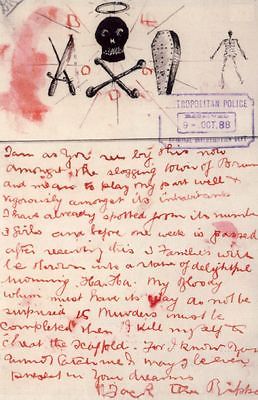 TROPOLITAN POLICE
RECEIVED
9 - OCT. 88
CRIMINAL INVESTIGATION DEPT
I am as you see by this now
amongst the slogging town of
and mean to play my part well &
vigorously amongst its inhabitants
I have already spotted from its
3 girls and before one week is passed
after receiving this 3 Families will
be thrown into a state of delightful
mourning. Ha. Ha. My Bloody
whim must have its way do not be
surprised 15 Murders must be
completed then I kill myself to
cheat the Scaffold. For I know you
cannot catch me & may I be even
present in your dreams
Jack the Ripper